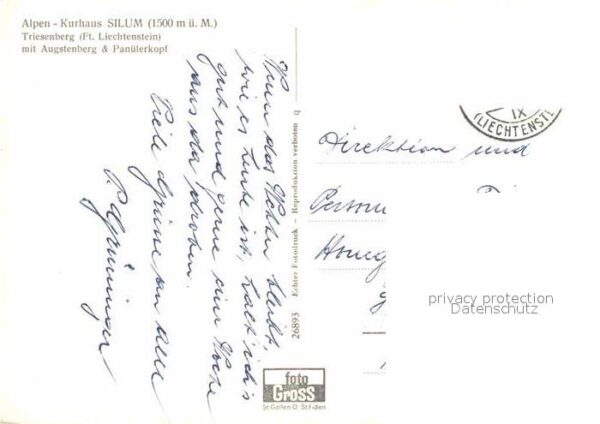 Alpen - Kurhaus SILUM (1500 m ü. M.)
Triesenberg (Ft. Liechtenstein)
mit Augstenberg & Panülerkopf
Wenn das Wetter bleibt,
wie es heute ist, halt ich's
gut und gerne eine Woche
aus da droben.
Viele Grüsse an alle
P. Grüninger
26893 Echter Fotodruck - Reproduktion verboten
foto
GROSS
St Gallen O. St Fiden
IX
(LIECHTENST
Direktion und
Person
Honeg
privacy protection
Datenschutz